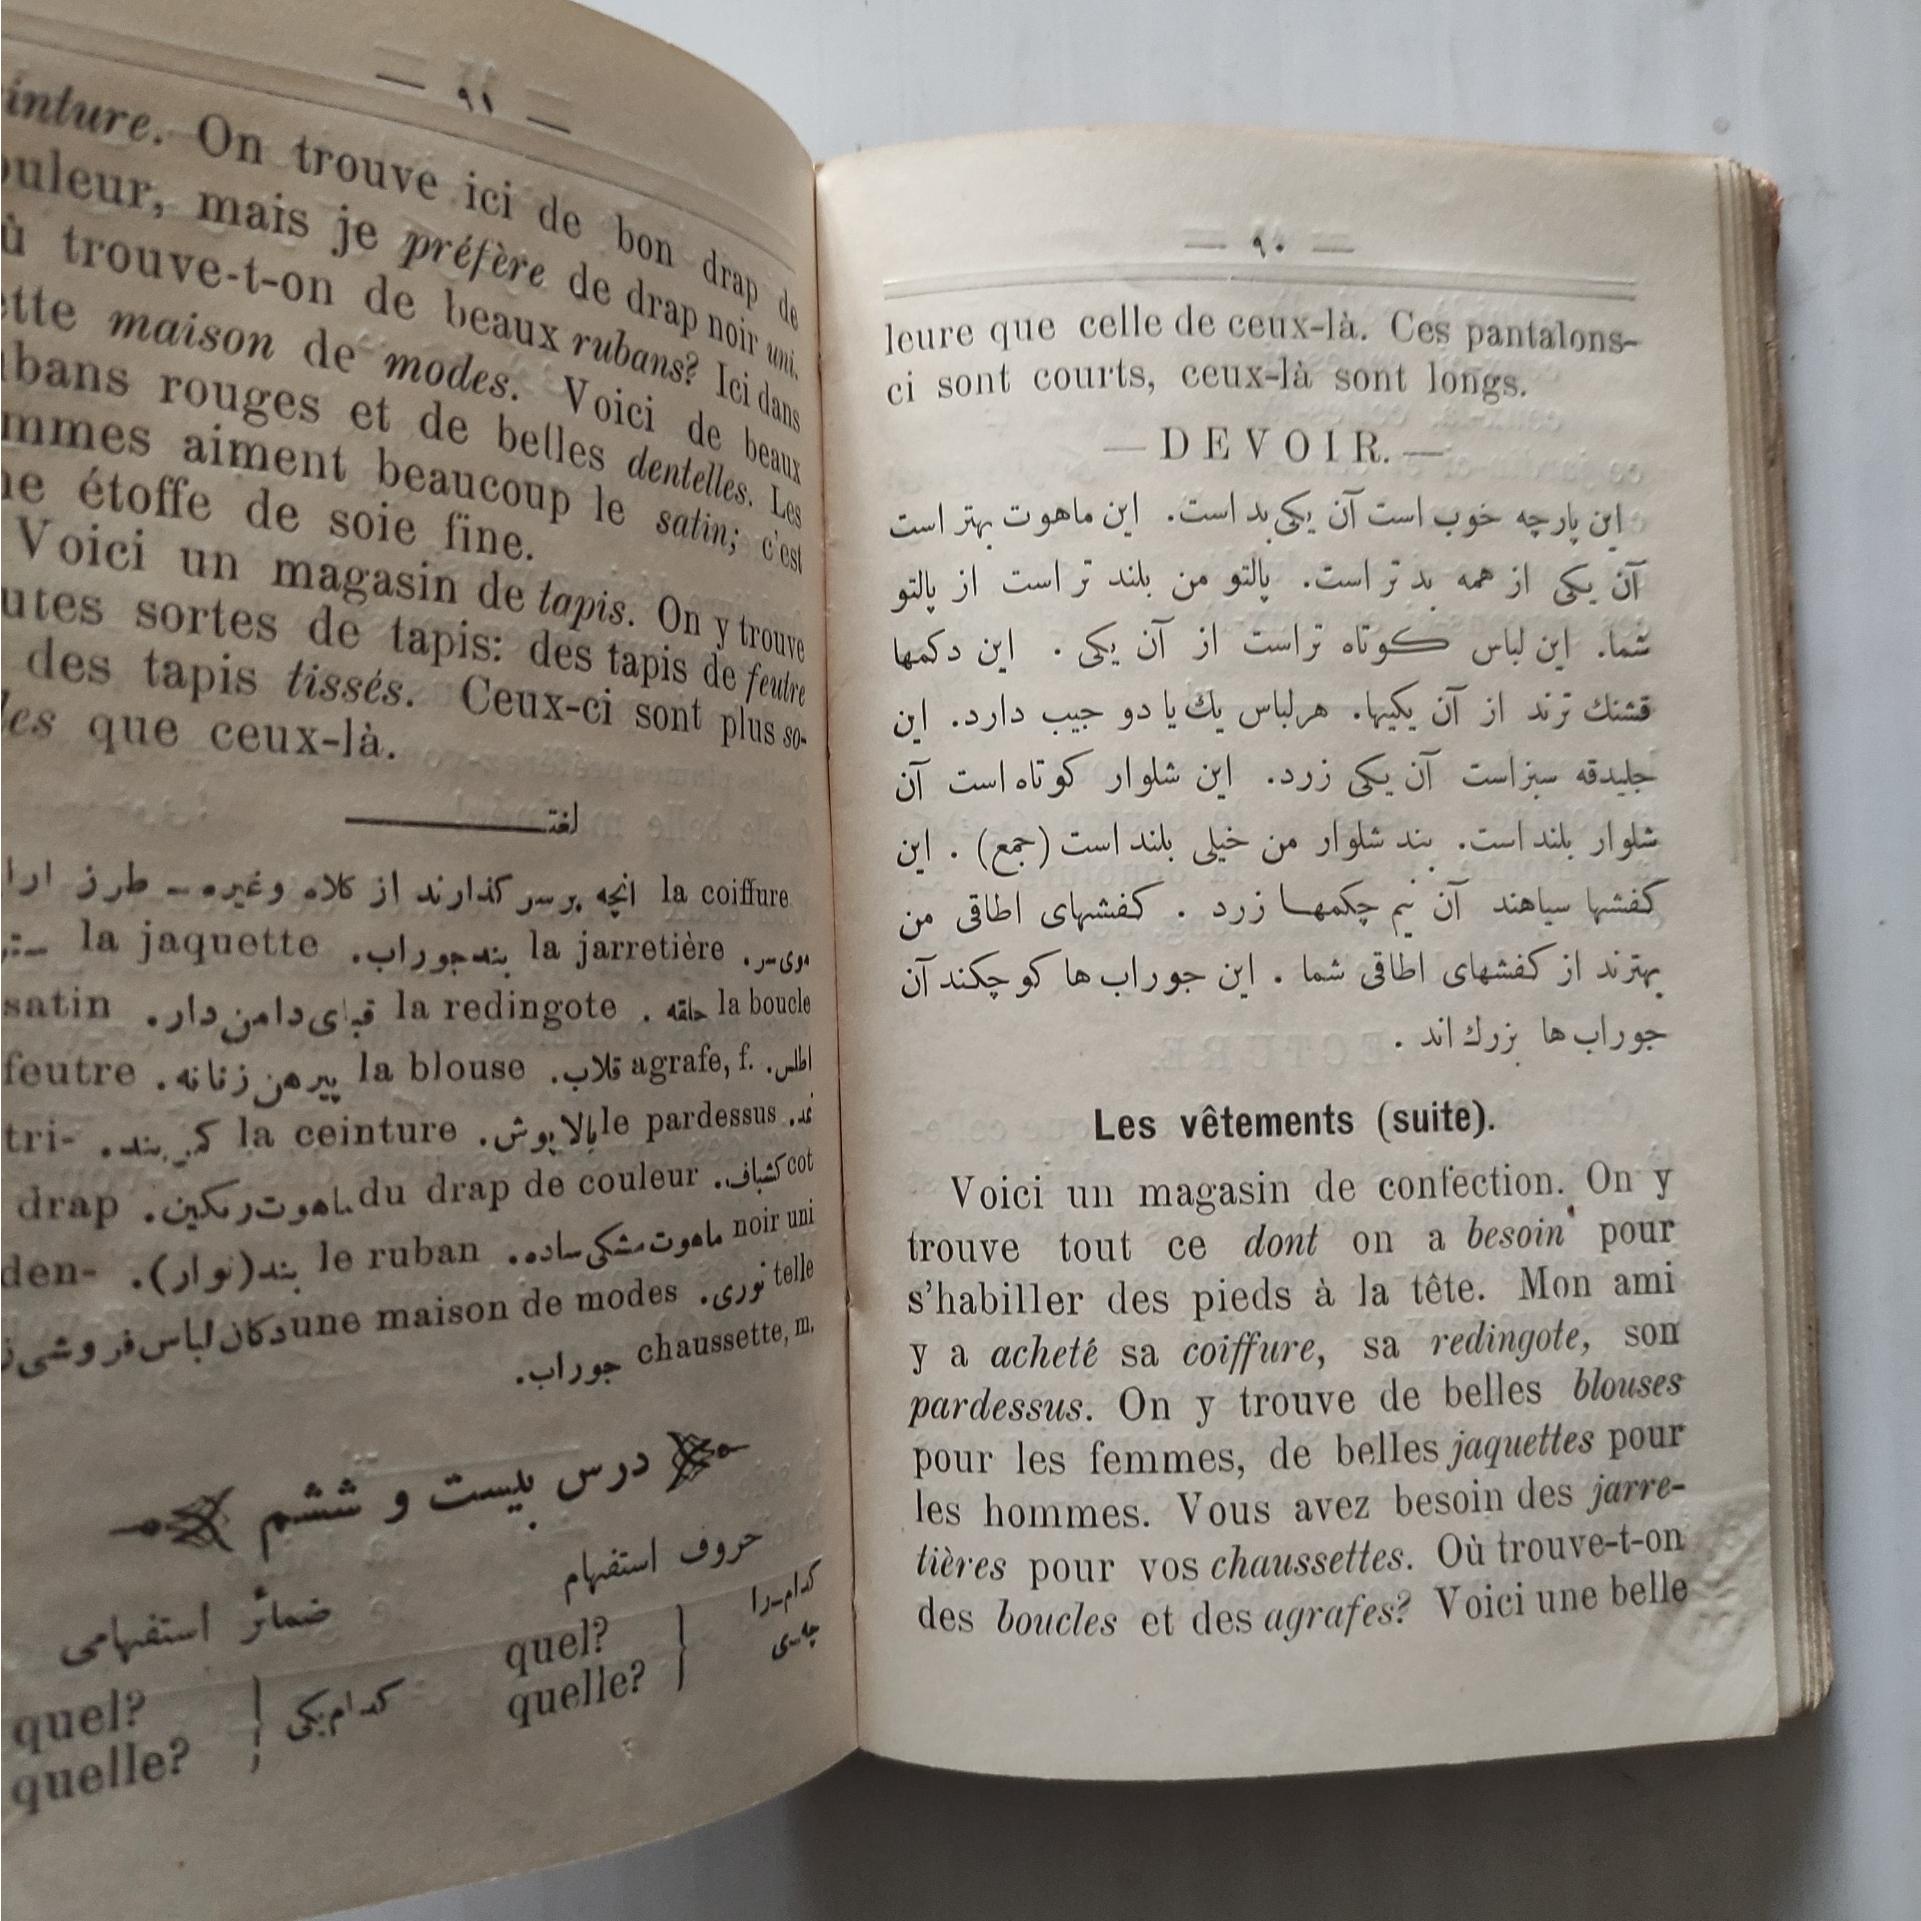 — ٩٠ —
leure que celle de ceux-là. Ces pantalons-
ci sont courts, ceux-là sont longs.
— DEVOIR. —
این پارچه خوب است آن یکی بد است. این ماهوت بهتر است
آن یکی از همه بد تر است. پالتو من بلند تر است از پالتو
شما. این لباس کوتاه تر است از آن یکی . این دکمها
قشنك ترند از آن یکیها. هر لباس یك یا دو جیب دارد. این
جلیدقه سبز است آن یکی زرد. این شلوار کوتاه است آن
شلوار بلند است. بند شلوار من خیلی بلند است (جمع) . این
کفشها سیاهند آن نیم چکمها زرد . کفشهای اطاقی من
بهترند از کفشهای اطاقی شما . این جوراب ها کوچکند آن
جوراب ها بزرك اند .
Les vêtements (suite).
Voici un magasin de confection. On y
trouve tout ce dont on a besoin pour
s'habiller des pieds à la tête. Mon ami
y a acheté sa coiffure, sa redingote, son
pardessus. On y trouve de belles blouses
pour les femmes, de belles jaquettes pour
les hommes. Vous avez besoin des jarre-
tières pour vos chaussettes. Où trouve-t-on
des boucles et des agrafes? Voici une belle
— ٩١ —
inture. On trouve ici de bon drap de
ouleur, mais je préfère de drap noir uni.
ù trouve-t-on de beaux rubans? Ici dans
ette maison de modes. Voici de beaux
bans rouges et de belles dentelles. Les
mmes aiment beaucoup le satin; c'est
ne étoffe de soie fine.
Voici un magasin de tapis. On y trouve
utes sortes de tapis: des tapis de feutre
des tapis tissés. Ceux-ci sont plus so-
les que ceux-là.
لغت
la coiffure انچه بر سر گذارند از کلاه وغیره — طرز ارا
موی سر. la jarretière بند جوراب. la jaquette
la boucle حلقه . la redingote قبای دامن دار. satin
اطلس. agrafe, f. قلاب. la blouse پیرهن زنانه. feutre
نمد. le pardessus بالا پوش. la ceinture کمر بند. tri-
cot کشباف. du drap de couleur ماهوت رنگین. drap
noir uni ماهوت مشکی ساده. le ruban بند (نوار). den-
telle توری. une maison de modes دکان لباس فروشی
chaussette, m. جوراب.
درس بیست و ششم
حروف استفهام ضمائر استفهامی
quel? quelle? } کدام-را چه-ی
quel? quelle? } کدام یکی